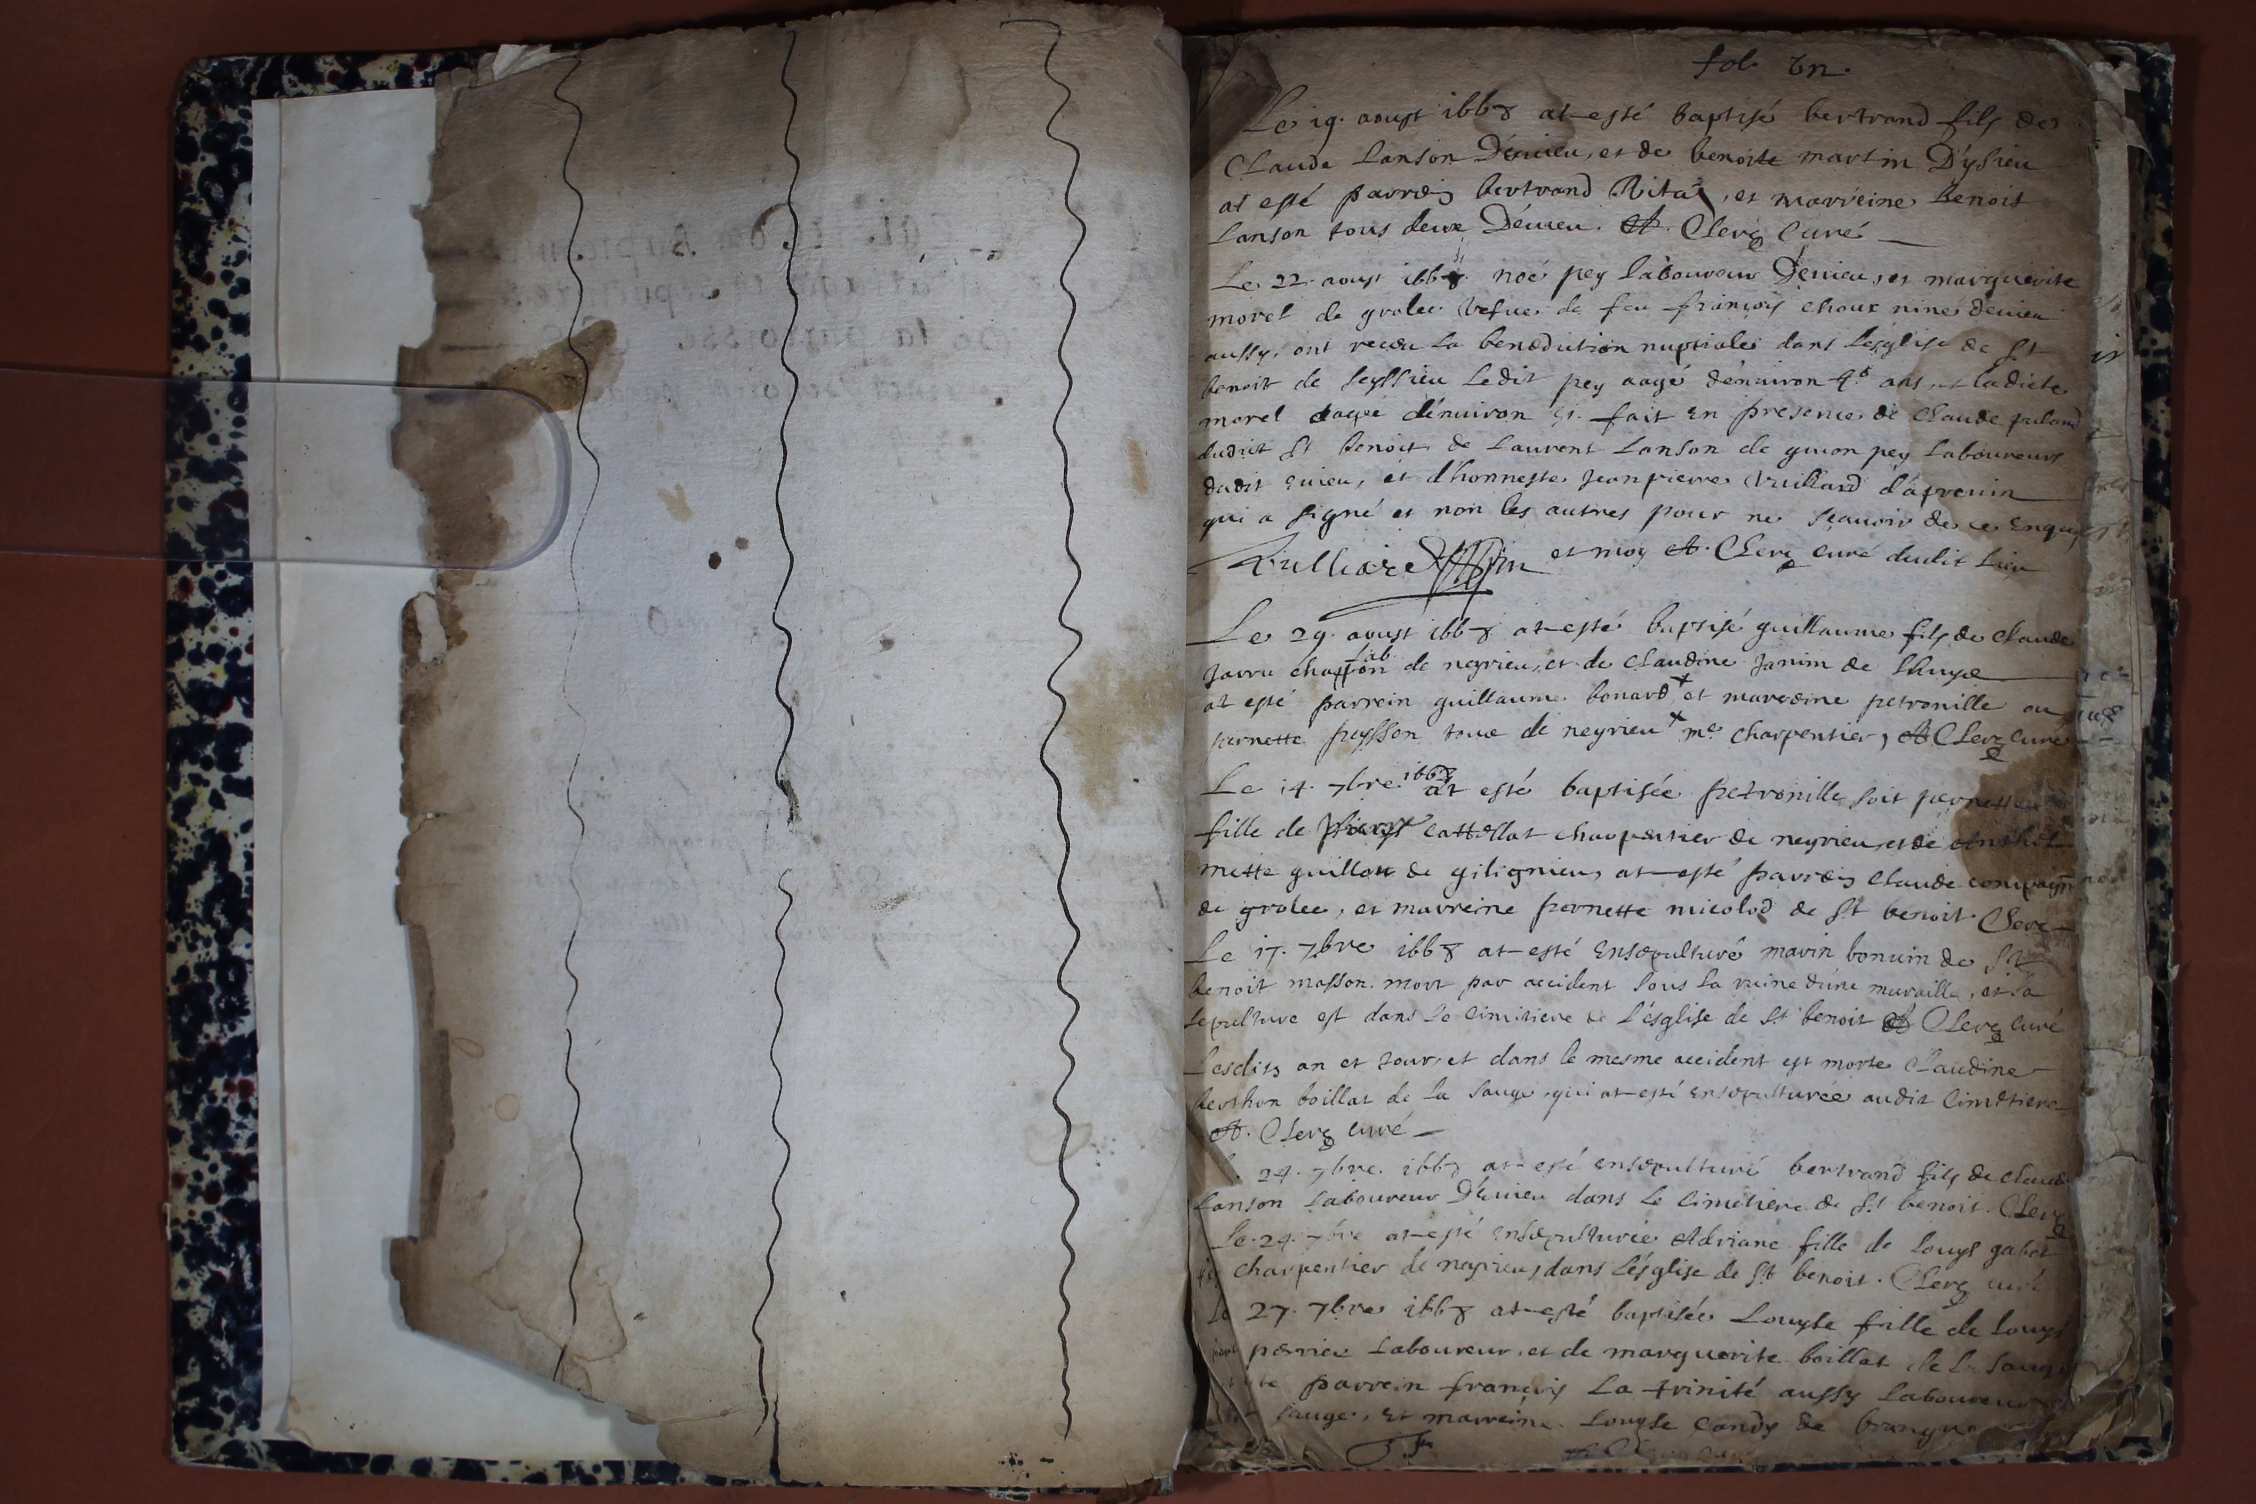 fol. un.
Le 19. aoust 1668 at esté baptisé bertrand fils de
Claude Lanson D'évieu, et de benoite martin D'ysieu
at esté parrein bertrand Vita, et marreine benoit
Lanson tous deux D'évieu. A. Clerc Curé
Le 22. aoust 1668. noé pey laboureur D'évieu, et marguerite
morel de grolee vefve de feu françois choux niné devieu
aussy, ont receu la benediction nuptiale dans l'esglise de St
benoit de seyssieu Ledit pey aagé d'environ ans, et ladicte
morel aagée d'environ fait en presence de Claude
dudit St benoit de Laurent Lanson de guion pey Laboureurs
dudit evieu, et d'honneste Jean pierre Vuillard d'aprenin
qui a signé et non les autres pour ne sçavoir de ce enquis
Vulliard et moy A. Clerc curé dudit Lieu
Le 29. aoust 1668 at esté baptisé guillaume fils de Claude
lab.
Jarru chappon de neyrieu, et de Claudine Janin de
at esté parrein guillaume bonard + et marreine petronille ou
pernette peysson tous de neyrieu + me charpentier, A Clerc Curé
1668
Le 14. 7bre at esté baptisée petronille soit pernette
fille de pierre cattellat charpentier de neyrieu, et de
mette guillot de gilignieu, at esté parrein Claude compagnon
de grolee, et marreine pernette micolod de St benoit. Clerc
Le 17. 7bre 1668 at esté ensepulturé marin bonnin de St
benoit masson. mort par accident sous la ruine d'une muraille, et sa
sepulture est dans le cimitiere de l'esglise de St benoit A Clerc Curé
Lesdits an et jour, et dans le mesme accident est morte Claudine
berthon boillat de la sauge, qui at esté ensepulturée audit Cimetiere
A. Clerc Curé
24. 7bre. 1668 at esté ensepulturé bertrand fils de claude
Lanson Laboureur D'évieu dans le cimetiere de St benoit. Clerc
Le 24. 7bre at esté ensepulturée Adriane fille de Louys gabet
charpentier de neyrieu, dans l'ésglise de St benoit. Clerc curé
Le 27. 7bre 1668 at esté baptisée Louyse fille de Louys
perrier Laboureur, et de marguerite boillat de la sauge
parrein françois La trinité aussy Laboureur
sauge, et marreine Louyse candy de brangue